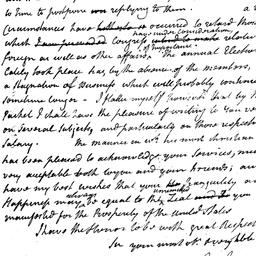 to time to postpone replying to them. a
Circumstances have occurred to retard those
which Congress have under consideration relative
foreign as well as other affairs. of importance. The annual Election
lately took place has, by the absence of the members,
a Stagnation of Business which will probably continue
some time longer. I flatter myself however that by the
Packet I shall have the pleasure of writing to You
on several Subjects, and particularly on those respecting
Salary. The manner in wh. his most christian
has been pleased to acknowledge your Services, must
very acceptable both to you and your friends; and
have my best wishes that your Tranquility and
Happiness may always be equal to the unremitted Zeal you
manifested for the Prosperity of the United States
I have the Honor to be with great Respect
Sir your most ob